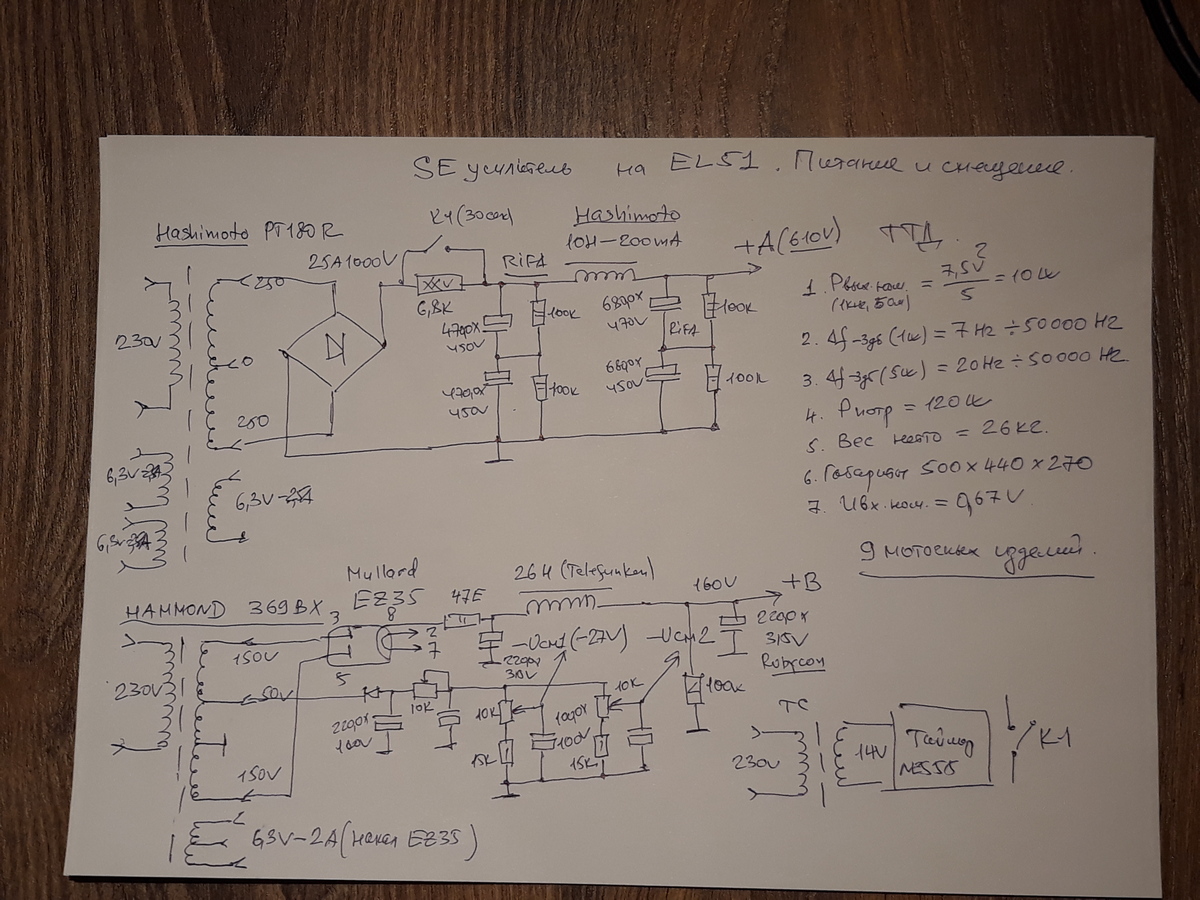 SE усилитель на EL51. Питание и смещение.
Hashimoto PT180R
25A1000V
K1 (30сек)
6,8K
RIFA
Hashimoto
10H-200mA
+A(610V)
230V
250
0
250
470,0x
450V
100K
470,0x
450V
100K
680,0x
470V
RIFA
100K
680,0x
450V
100K
6,3V-
6,3V-
6,3V-2,5A
ТТД.
1. Pвых.ном. = 7,5V² / 5 = 10W
(1кнz, 5ом)
2. Δf-3дб (1W) = 7Hz ÷ 50000 Hz
3. Δf-3дб (5W) = 20Hz ÷ 50000 Hz.
4. Pпотр = 120W
5. Вес нетто = 26кг.
6. Габариты 500 x 440 x 270
7. Uвх.ном. = 0,67V
9 моточных изделий.
HAMMOND 369BX
Mullard
EZ35
3
8
2
7
5
47E
26H (Telefunken)
160V
+B
230V
150V
50V
150V
220,0x
-Uсм1 (-27V)
-Uсм2
220,0x
315V
Rubycon
100K
220,0x
100V
10K
10K
15K
100,0x
100V
10K
15K
6,3V-2A (накал EZ35)
TC
230V
14V
Таймер
NE555
K1